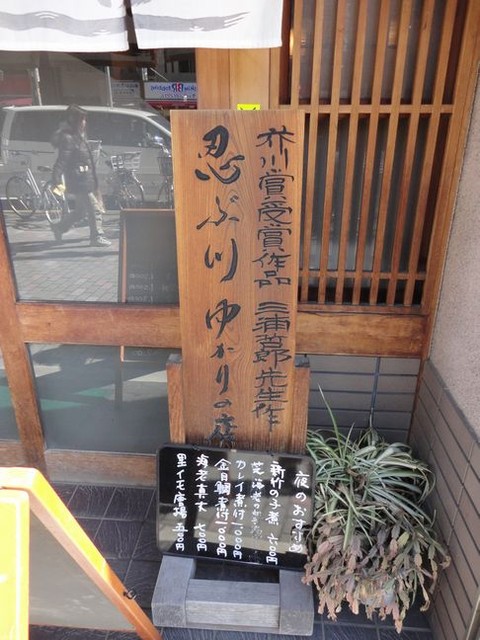 芥川賞受賞作品 三浦哲郎先生作
忍ぶ川 ゆかりの店
夜のおすすめ
新竹の子煮 六〇〇円
芝海老のかき
カレイ煮付 一,〇〇〇円
金目鯛煮付 一,〇〇〇円
海老真丈 七〇〇円
里イモ唐揚 五〇〇円